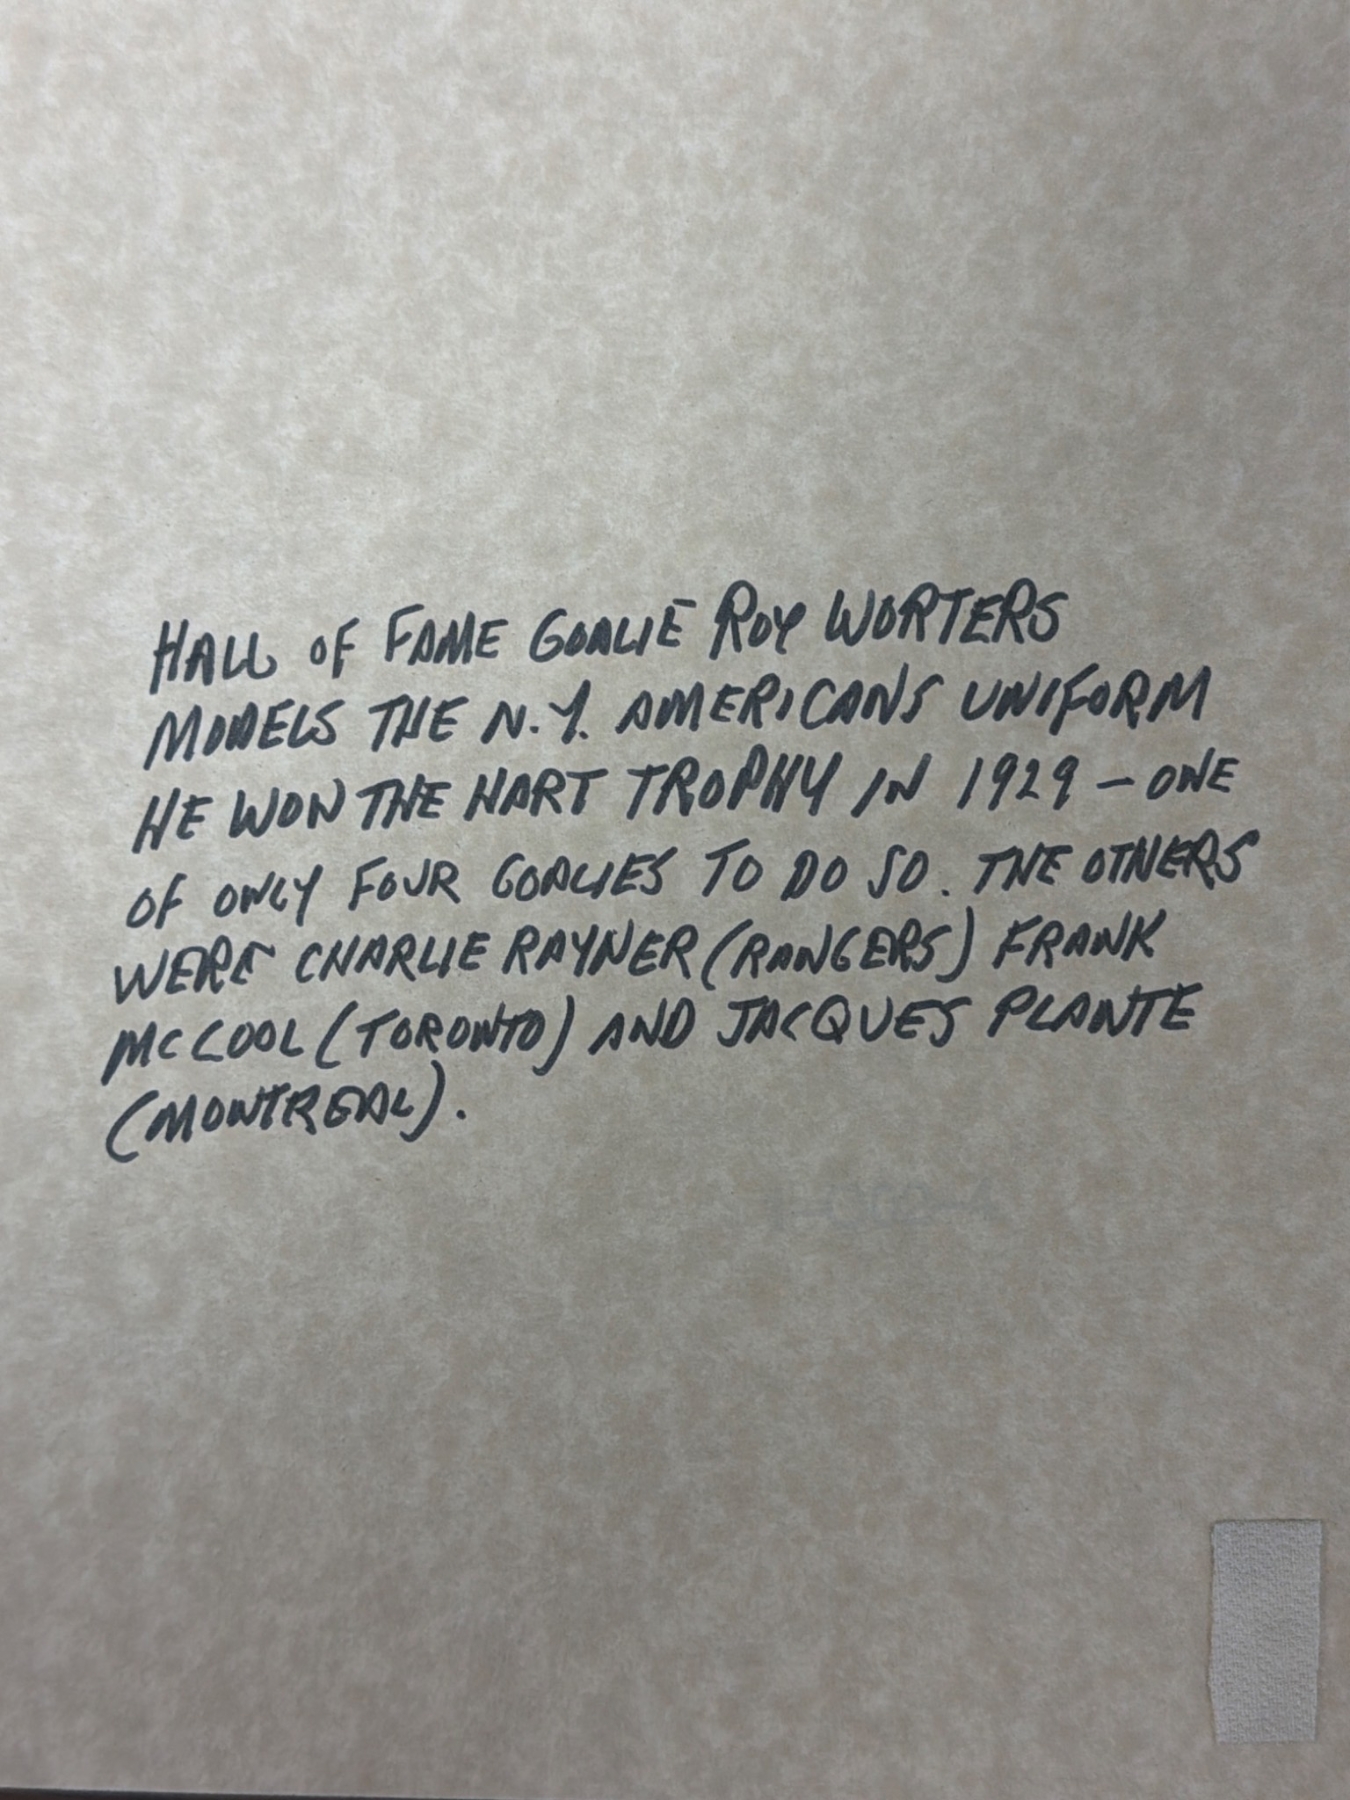 HALL OF FAME GOALIE ROY WORTERS
MODELS THE N.Y. AMERICANS UNIFORM
HE WON THE HART TROPHY IN 1929 – ONE
OF ONLY FOUR GOALIES TO DO SO. THE OTHERS
WERE CHARLIE RAYNER (RANGERS) FRANK
MCCOOL (TORONTO) AND JACQUES PLANTE
(MONTREAL).